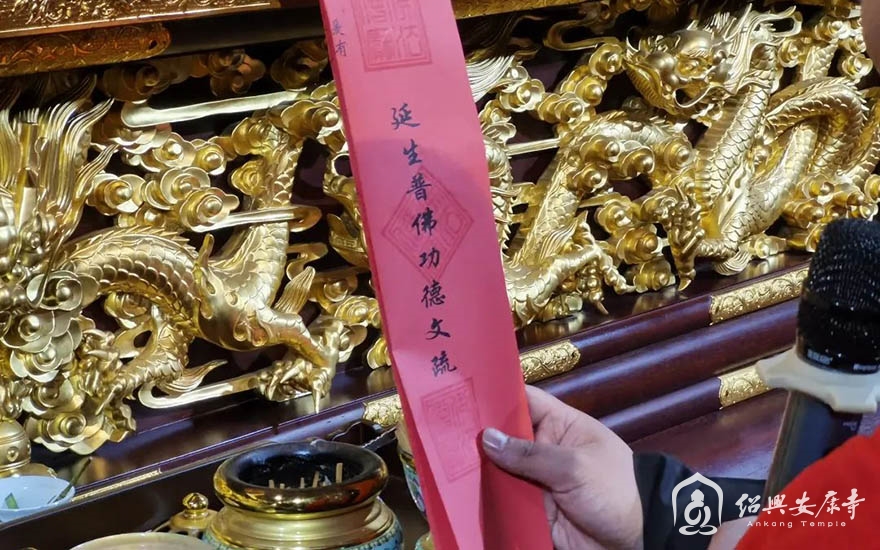 延生普佛功德文疏
紹興安康寺
Ankang Temple